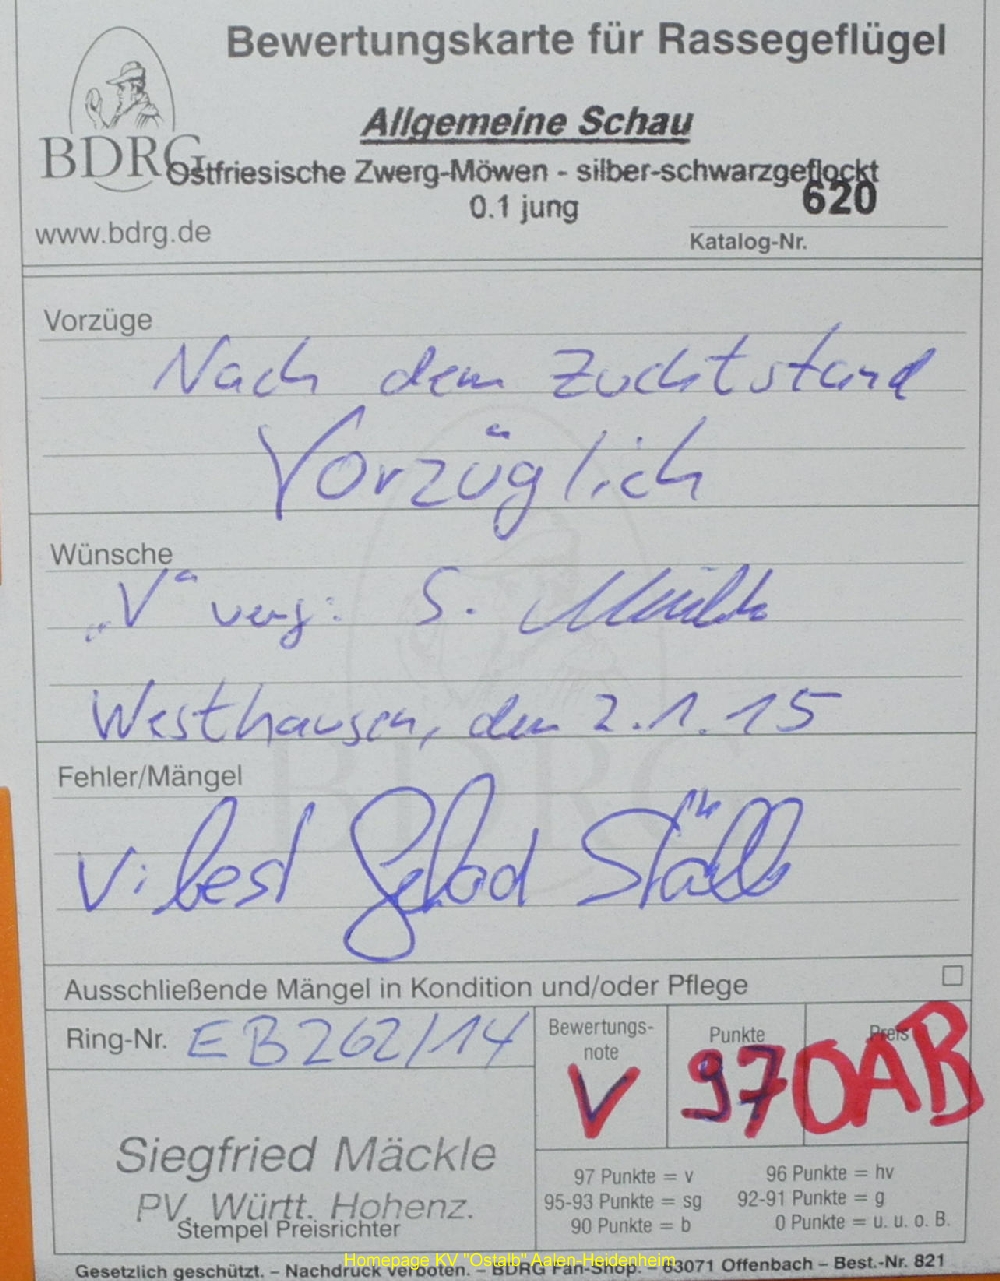 Bewertungskarte für Rassegeflügel
Allgemeine Schau
BDRG
Ostfriesische Zwerg-Möwen - silber-schwarzgeflockt
620
0.1 jung
www.bdrg.de
Katalog-Nr.
Vorzüge
Nach dem Zuchtstand
Vorzüglich
Wünsche
"V" verg: S.
Westhausen, den 2.1.15
Fehler/Mängel
BDRG
V: best
Ausschließende Mängel in Kondition und/oder Pflege
Ring-Nr. EB262/14
Bewertungs-
note
Punkte
Preis
V 97 OAB
Siegfried Mäckle
PV. Württ. Hohenz.
Stempel Preisrichter
97 Punkte = v 96 Punkte = hv
95-93 Punkte = sg 92-91 Punkte = g
90 Punkte = b 0 Punkte = u. u. o. B.
Homepage KV "Ostalb" Aalen-Heidenheim
Gesetzlich geschützt. – Nachdruck verboten. – BDRG Fan-Shop. – 63071 Offenbach – Best.-Nr. 821